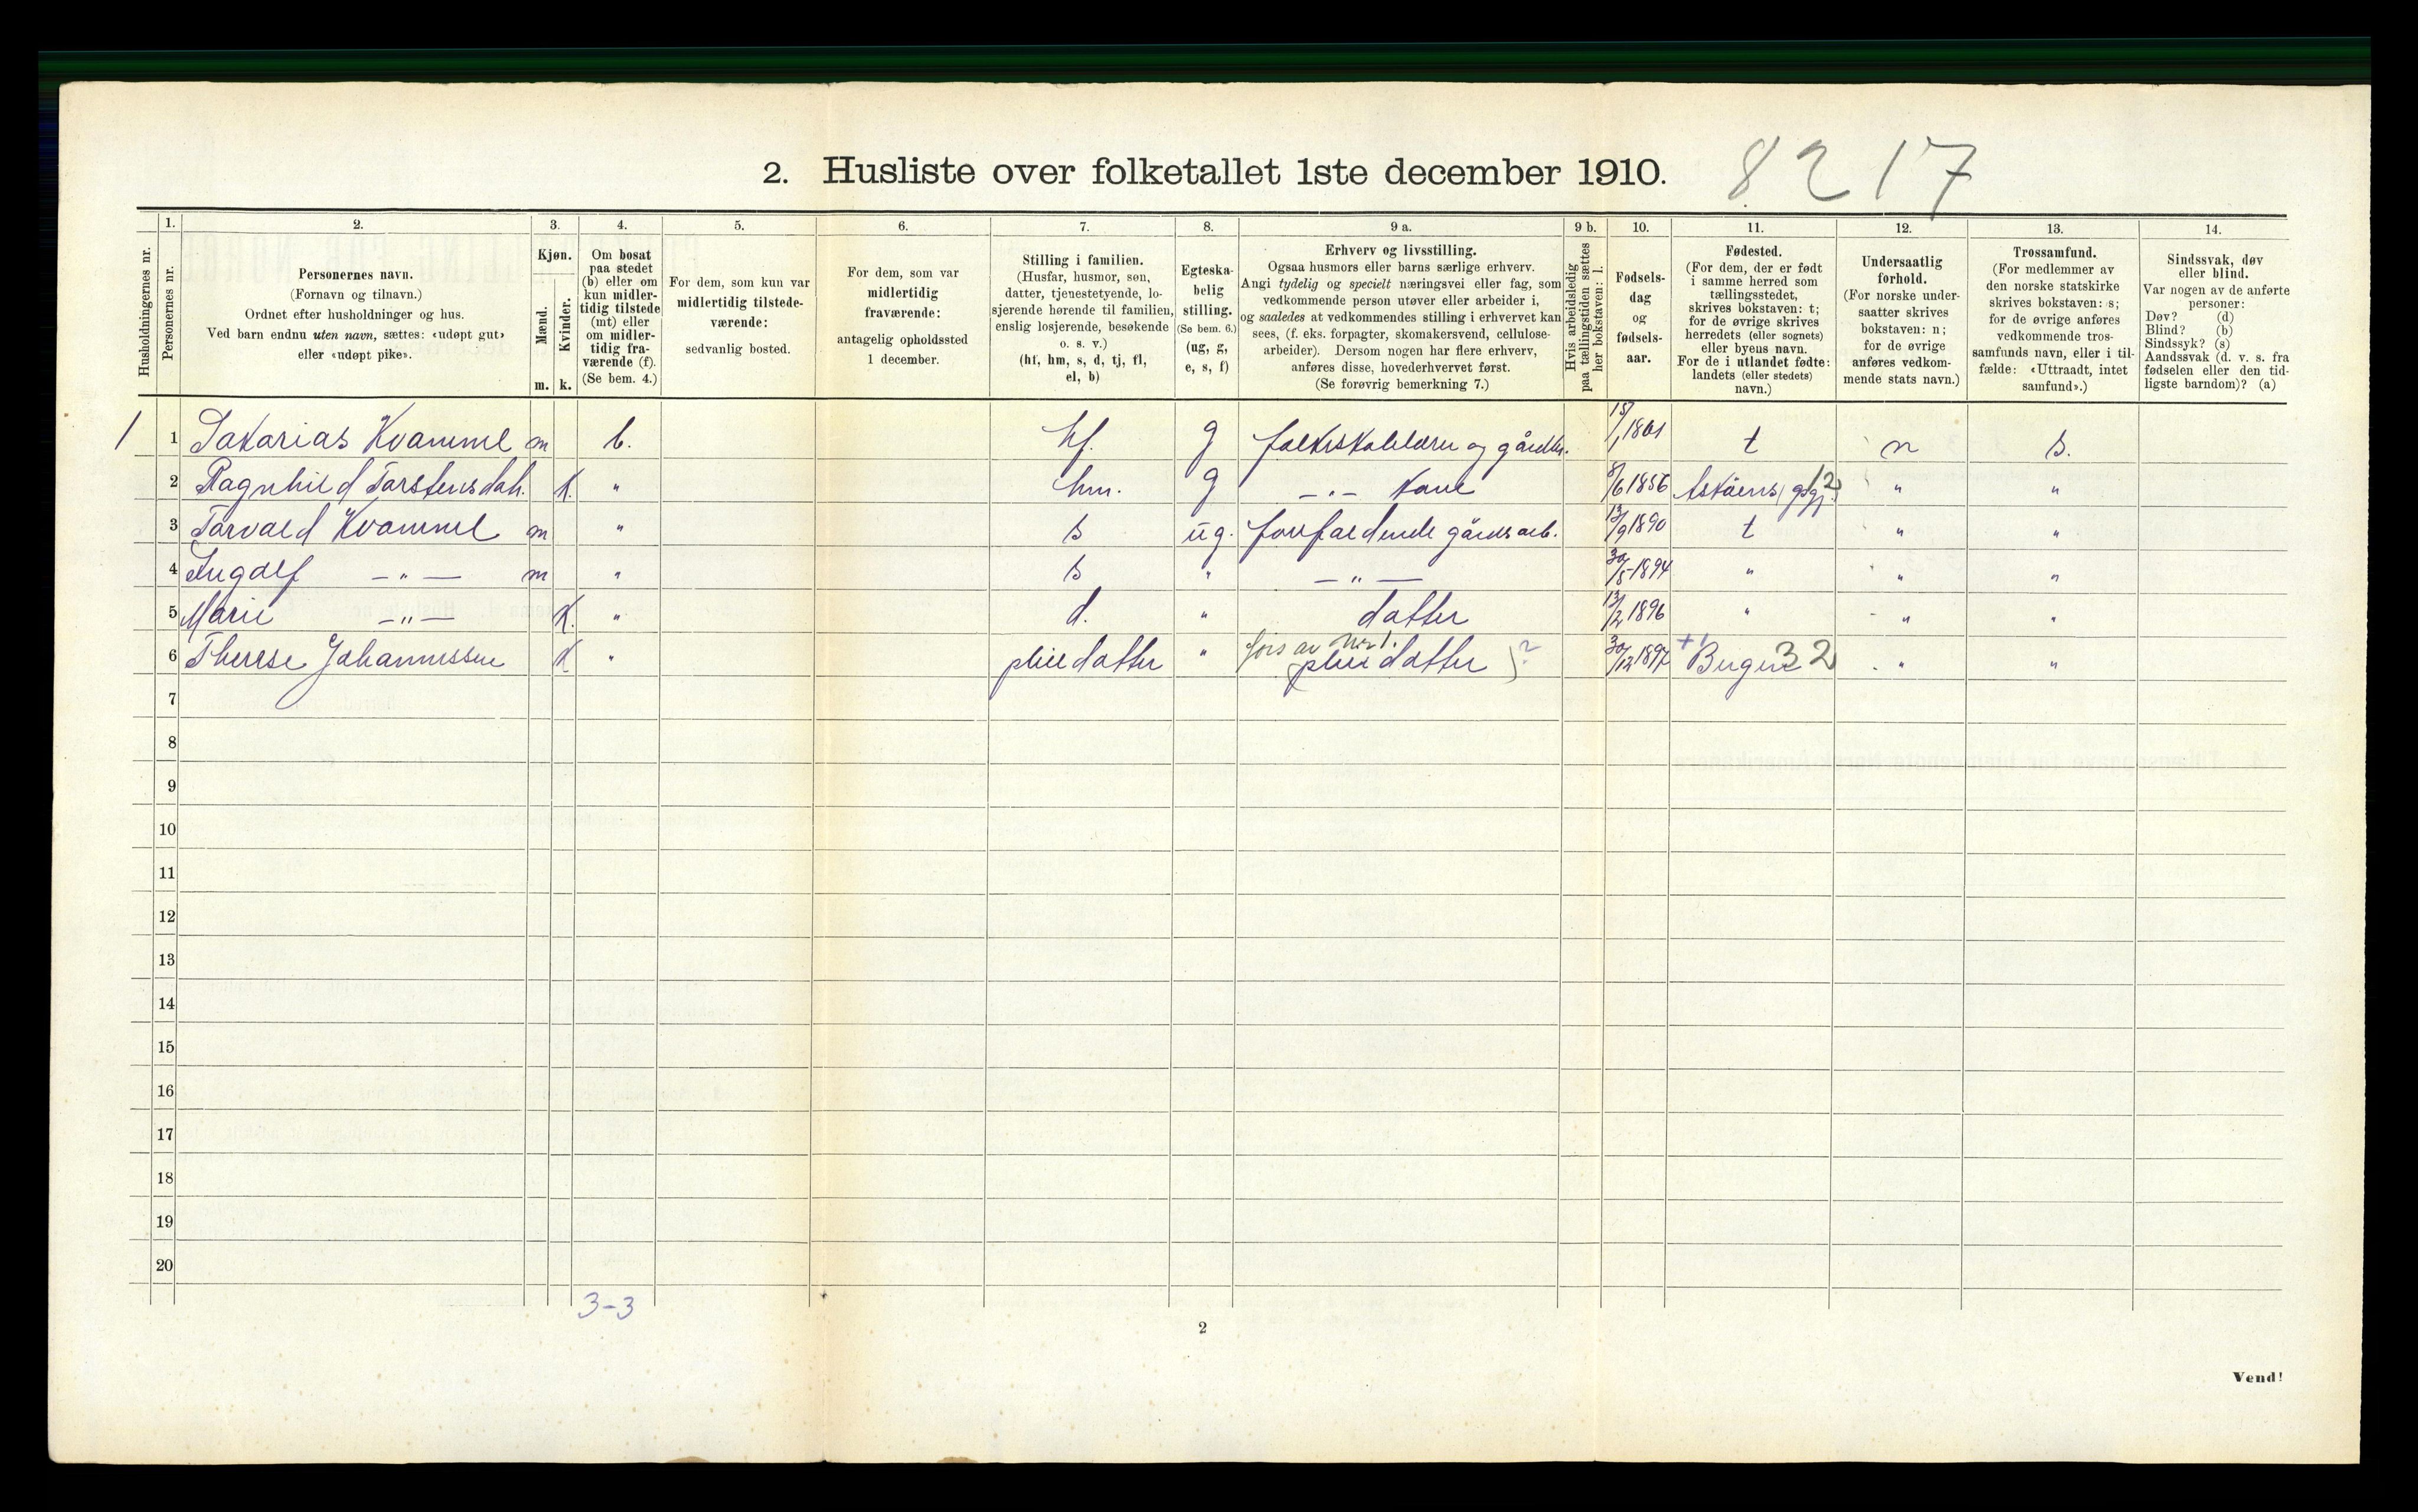 2. Husliste over folketallet 1ste december 1910.
8217
Husholdningernes nr.
1.
Personernes nr.
2.
Personernes navn.
(Fornavn og tilnavn.)
Ordnet efter husholdninger og hus.
Ved barn endnu uten navn, sættes: «udøpt gut»
eller «udøpt pike».
3.
Kjøn.
Mænd.
Kvinder.
m. k.
4.
Om bosat
paa stedet
(b) eller om
kun midler-
tidig tilstede
(mt) eller
om midler-
tidig fra-
værende (f).
(Se bem. 4.)
5.
For dem, som kun var
midlertidig tilstede-
værende:
sedvanlig bosted.
6.
For dem, som var
midlertidig
fraværende:
antagelig opholdssted
1 december.
7.
Stilling i familien.
(Husfar, husmor, søn,
datter, tjenestetyende, lo-
sjerende hørende til familien,
enslig losjerende, besøkende
o. s. v.)
(hf, hm, s, d, tj, fl,
el, b)
8.
Egteska-
belig
stilling.
(Se bem. 6.)
(ug, g,
e, s, f)
9 a.
Erhverv og livsstilling.
Ogsaa husmors eller barns særlige erhverv.
Angi tydelig og specielt næringsvei eller fag, som
vedkommende person utøver eller arbeider i,
og saaledes at vedkommendes stilling i erhvervet kan
sees, (f. eks. forpagter, skomakersvend, cellulose-
arbeider). Dersom nogen har flere erhverv,
anføres disse, hovederhvervet først.
(Se forøvrig bemerkning 7.)
9 b.
Hvis arbeidsledig
paa tællingstiden sættes
her bokstaven: l.
10.
Fødsels-
dag
og
fødsels-
aar.
11.
Fødested.
(For dem, der er født
i samme herred som
tællingsstedet,
skrives bokstaven: t;
for de øvrige skrives
herredets (eller sognets)
eller byens navn.
For de i utlandet fødte:
landets (eller stedets)
navn.)
12.
Undersaatlig
forhold.
(For norske under-
saatter skrives
bokstaven: n;
for de øvrige
anføres vedkom-
mende stats navn.)
13.
Trossamfund.
(For medlemmer av
den norske statskirke
skrives bokstaven: s;
for de øvrige anføres
vedkommende tros-
samfunds navn, eller i til-
fælde: «Uttraadt, intet
samfund».)
14.
Sindssvak, døv
eller blind.
Var nogen av de anførte
personer:
Døv? (d)
Blind? (b)
Sindssyk? (s)
Aandssvak (d. v. s. fra
fødselen eller den tid-
ligste barndom)? (a)
1 1 Sakarias Kvamme m b. hf. g folkeskolelærer og gårdbr. 15/1 1861 t n s.
2 Ragnhild Torstensdatr. K. " hm. g —"— kone 8/6 1856 12 " "
3 Torvald Kvamme m " s ug. forefaldende gårdsarb. 13/9 1890 t " "
4 Ingolf —"— m " s " —"— 30/5 1894 " " "
5 Marie —"— K. " d. " datter 13/2 1896 " " "
6 Therese Johannessen K " pleiedatter " fors av nr 1. pleiedatter ? 30/12 1897 + Bergen 32 " "
7
8
9
10
11
12
13
14
15
16
17
18
19
20
3-3
2
Vend!